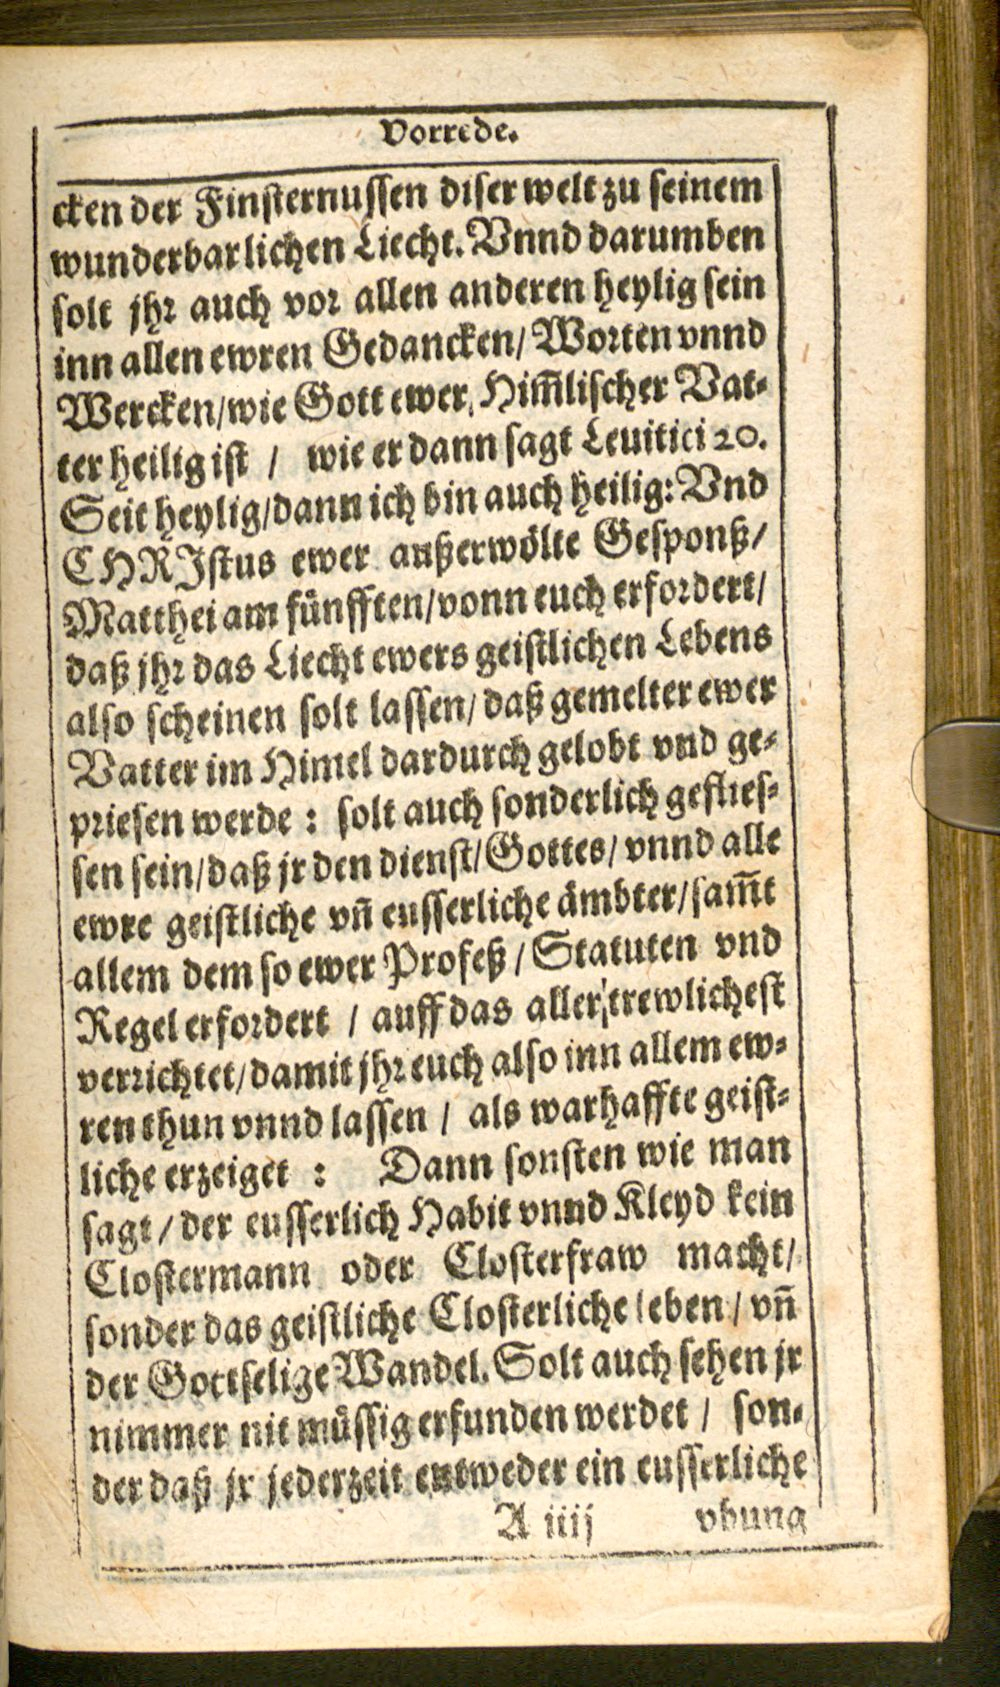 Vorrede.
cken der Finsternussen diser welt zu seinem
wunderbarlichen Liecht. Vnnd darumben
solt jhr auch vor allen anderen heylig sein
inn allen ewren Gedancken/ Worten vnnd
Wercken/wie Gott ewer Him̃lischer Vat-
ter heilig ist / wie er dann sagt Leuitici 20.
Seit heylig/dann ich bin auch heilig: Vnd
CHRIstus ewer außerwölte Gesponß/
Matthei am fünfften/vonn euch erfordert/
daß jhr das Liecht ewers geistlichen Lebens
also scheinen solt lassen/ daß gemelter ewer
Vatter im Himel dardurch gelobt vnd ge-
priesen werde : solt auch sonderlich geflies-
sen sein/daß jr den dienst/Gottes/ vnnd alle
ewre geistliche vñ eusserliche ämbter/sam̃t
allem dem so ewer Profeß / Statuten vnd
Regel erfordert / auff das aller trewlichest
verrichtet/damit jhr euch also inn allem ew-
ren thun vnnd lassen / als warhaffte geist-
liche erzeiget : Dann sonsten wie man
sagt / der eusserlich Habit vnnd Kleyd kein
Clostermann oder Closterfraw macht/
sonder das geistliche Closterliche leben / vñ
der Gottselige Wandel. Solt auch sehen jr
nimmer nit müssig erfunden werdet / son-
der daß jr jederzeit entweder ein eusserliche
A iiij vbung